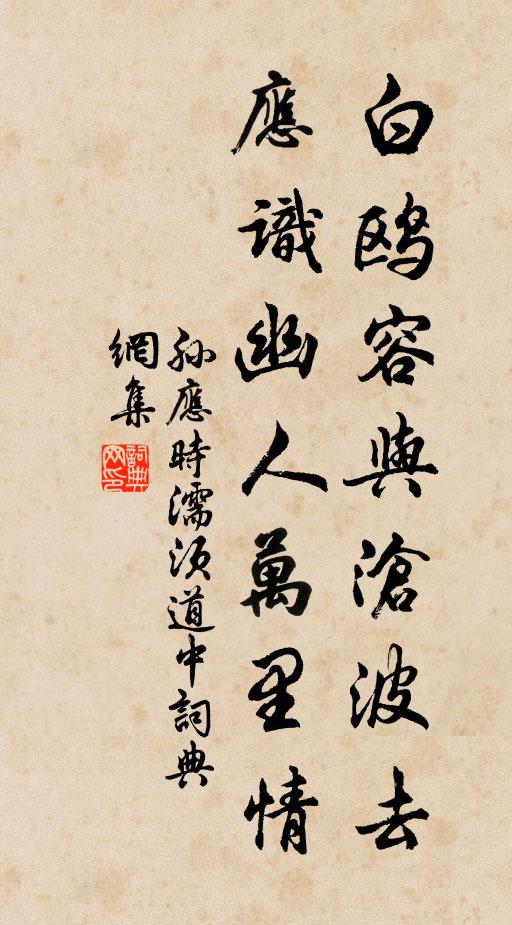 白鸥容與滄波去
應識幽人萬里情
孫應時濡須道中詞典
網集
詞典
网印